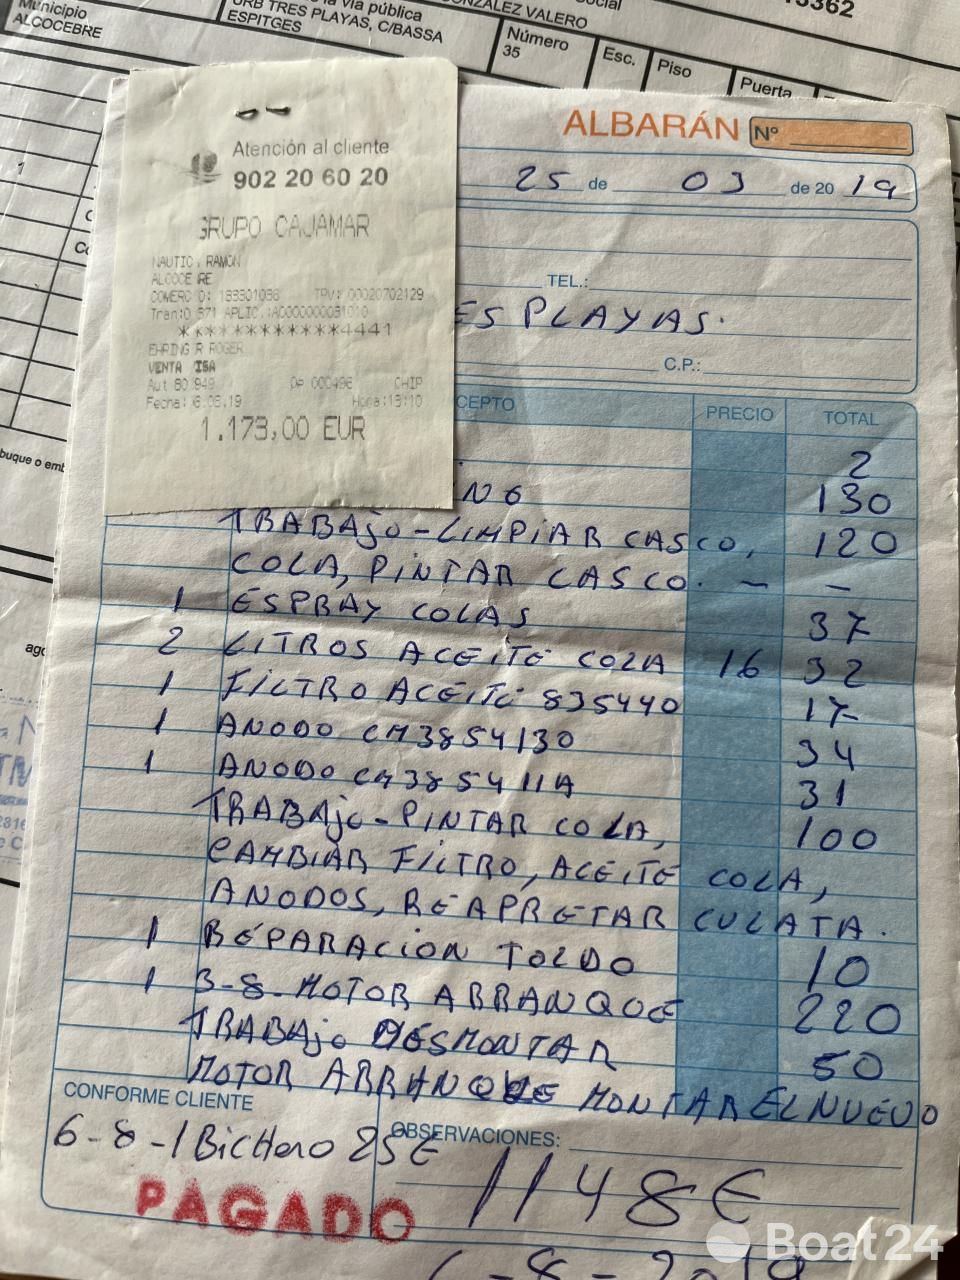 Municipio
ALCOCEBRE
la vía pública
URB TRES PLAYAS, C/BASSA
ESPITGES
GONZALEZ VALERO
Social
Número
35
Esc.
Piso
Puerta
ALBARÁN Nº
25 de 03 de 20 19
TEL.:
ES PLAYAS.
C.P.:
Atención al cliente
902 20 60 20
GRUPO CAJAMAR
NAUTIC. RAMON
******4441
VENTA
CHIP
Hora:13:10
1.173,00 EUR
CEPTO PRECIO TOTAL
2
130
TRABAJO-LIMPIAR CASCO, 120
COLA, PINTAR CASCO. - -
1 ESPRAY COLAS 37
2 LITROS ACEITE COLA 16 32
1 FILTRO ACEITE 835440 17
1 ANODO CM3854130 34
1 ANODO 31
TRABAJO-PINTAR COLA, 100
CAMBIAR FILTRO, ACEITE COLA,
ANODOS, REAPRETAR CULATA.
1 REPARACION TOLDO 10
1 3-8-MOTOR ARRANQUE 220
TRABAJO DESMONTAR 50
MOTOR ARRANQUE MONTAR EL NUEVO
CONFORME CLIENTE
OBSERVACIONES:
6-8-1 Bichero 25€
1148€
PAGADO
6-8-2019
Boat24